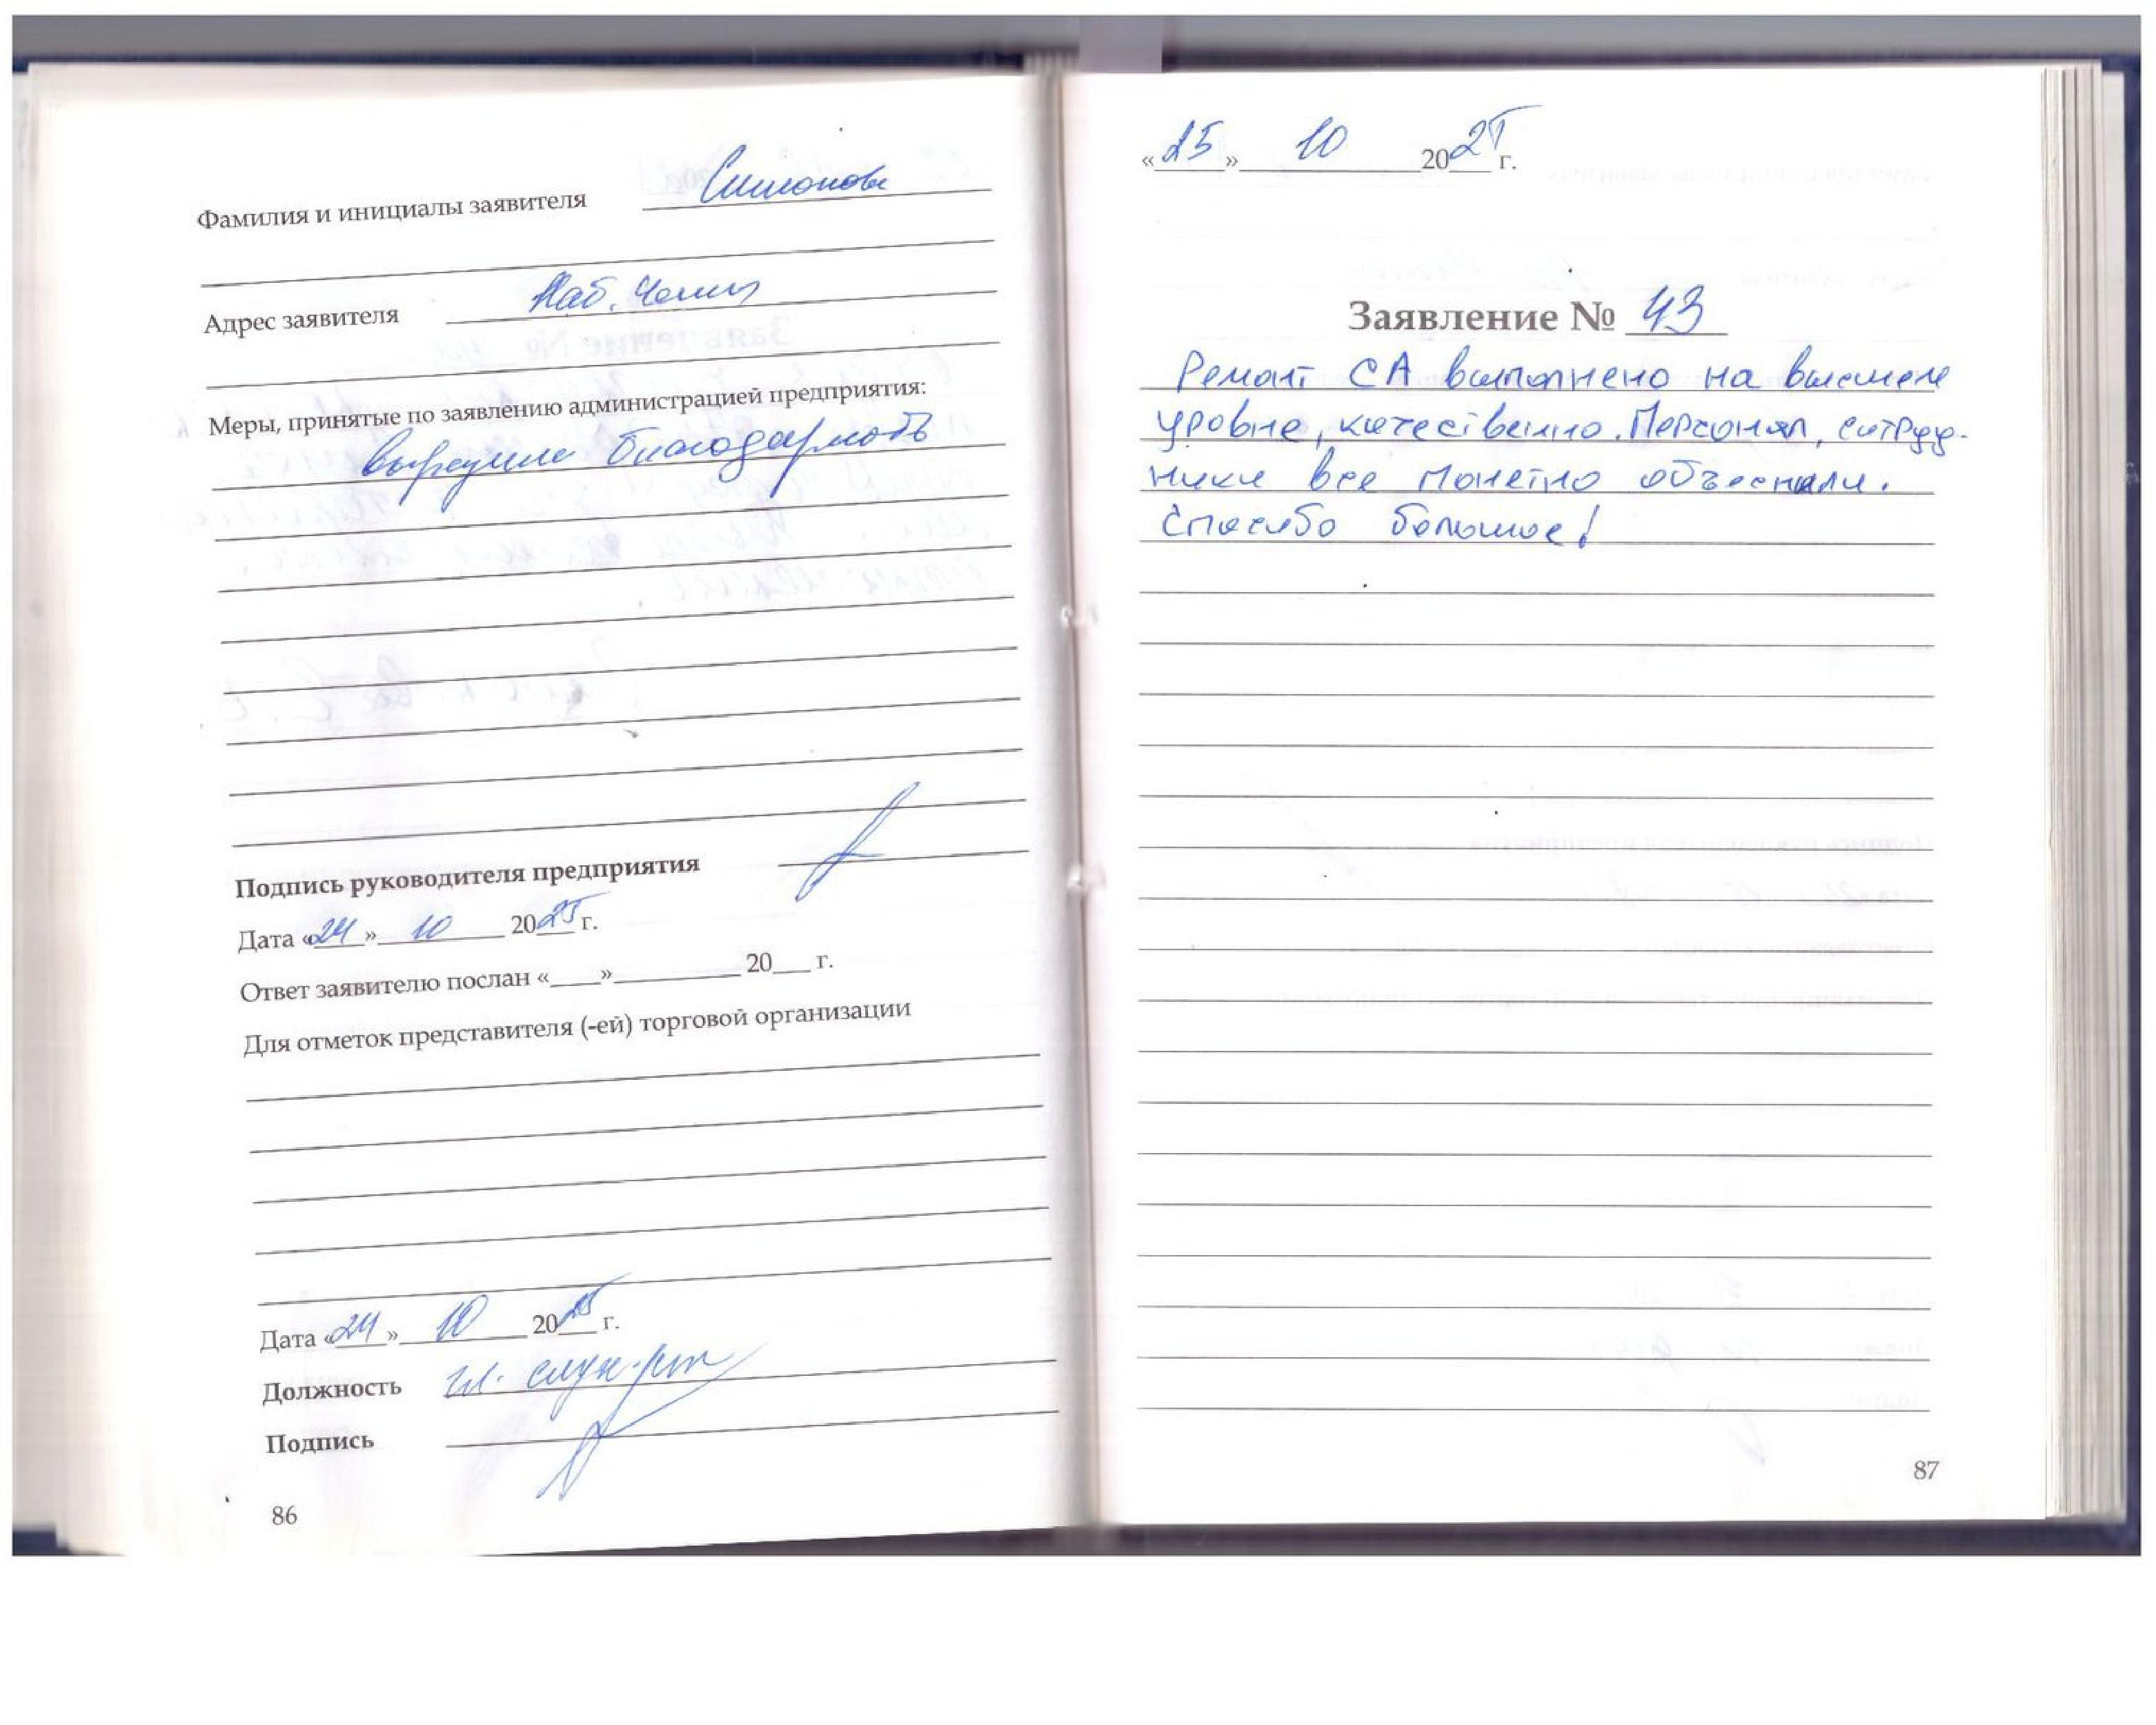 Фамилия и инициалы заявителя Симонова
Адрес заявителя Наб. Челны
Меры, принятые по заявлению администрацией предприятия:
благодарность
Подпись руководителя предприятия
Дата «24» 10 2025 г.
Ответ заявителю послан «___»__________ 20___ г.
Для отметок представителя (-ей) торговой организации
Дата «24» 10 2025 г.
Должность гл.
Подпись
86
«25» 10 2025 г.
Заявление № 43
Ремонт СА выполнено на высшем
уровне, качественно. Персонал, сотруд-
ники все понетно объеснили.
Спасибо большое!
87